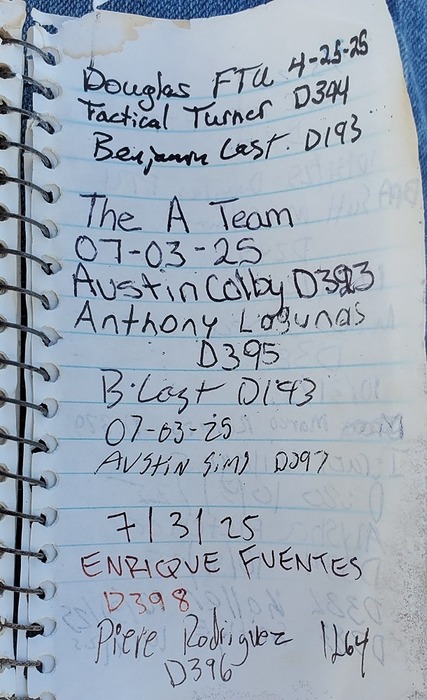 Douglas FTU 4-25-25
Tactical Turner D344
Benjamin Cast. D193
The A Team
07-03-25
Austin Colby D393
Anthony Lagunas
D395
B. Cast D193
07-03-25
AUSTIN SIMS D297
7/3/25
ENRIQUE FUENTES
D398
Piere Rodriguez 1264
D396